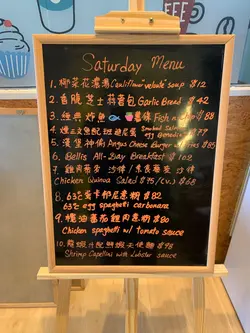 Saturday Menu
1. 椰菜花濃湯 Cauliflower "velouté" soup $12
2. 香脆芝士蒜蓉包 Garlic Bread $42
3. 經典炸魚 薯條 Fish n $88
4. Smoked Salmon
egg Benedict
5. 漢堡神偷 Angus Cheese Burger w/fries $85
6. Bellis All-Day Breakfast $102
7. 雞肉藜麥沙律 / 素食藜麥沙律
Chicken Quinoa Salad $75 / (v.) $68
8. 63℃ 蛋卡邦尼意粉 $82
63℃ egg spaghetti carbonara
9. 橄油番茄雞肉意粉 $80
Chicken spaghetti w/ tomato sauce
10. 龍蝦汁配鮮蝦天使麵 $98
Shrimp Capellini with Lobster sauce